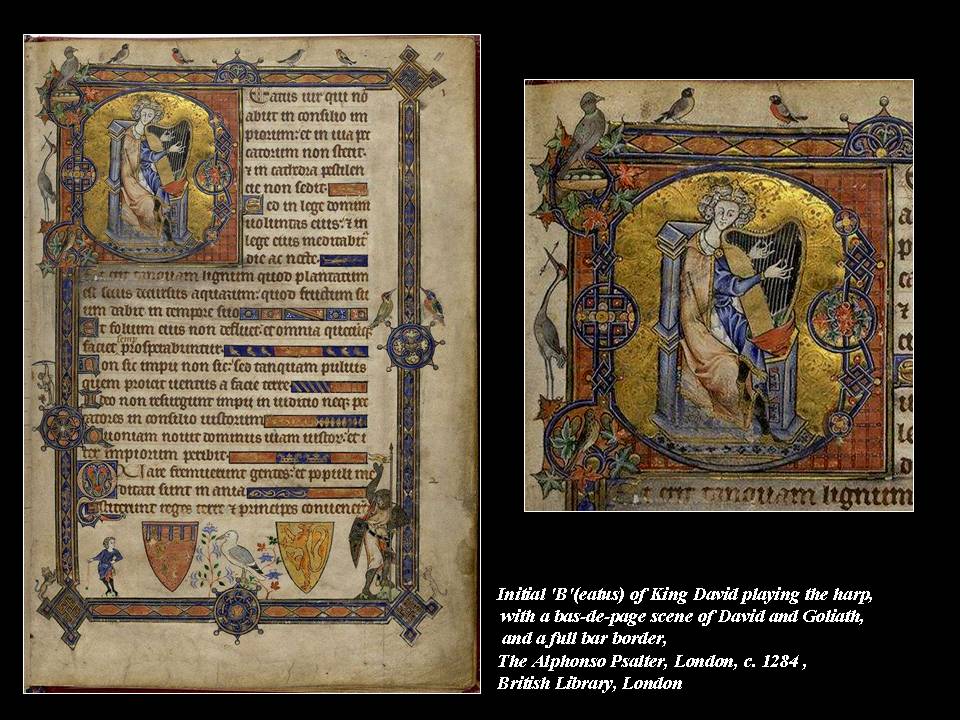 eatus uir qui no
abiit in consilio im
piorum: et in uia pec
catorum non stetit.
et in cathedra pestilen
cie non sedit.
Sed in lege domini
uoluntas eius: et in
lege eius meditabit
die ac nocte.
Et erit tanquam lignum quod plantatum
est secus decursus aquarum: quod fructum su
um dabit in tempore suo
Et folium eius non defluet: et omnia quecūq
faciet semp prosperabuntur.
Non sic impii non sic: sed tanquam puluis
quem proicit uentus a facie terre.
Ideo non resurgunt impii in iudicio neqz pec
catores in consilio iustorum
Quoniam nouit dominus uiam iustoꝝ: et i
ter impiorum peribit.
Quare fremuerunt gentes: et populi me
ditati sunt inania
Astiterunt reges terre et principes conuenerūt
a
p
ca
Et erit tanquam lignum
Initial 'B'(eatus) of King David playing the harp,
with a bas-de-page scene of David and Goliath,
and a full bar border,
The Alphonso Psalter, London, c. 1284 ,
British Library, London